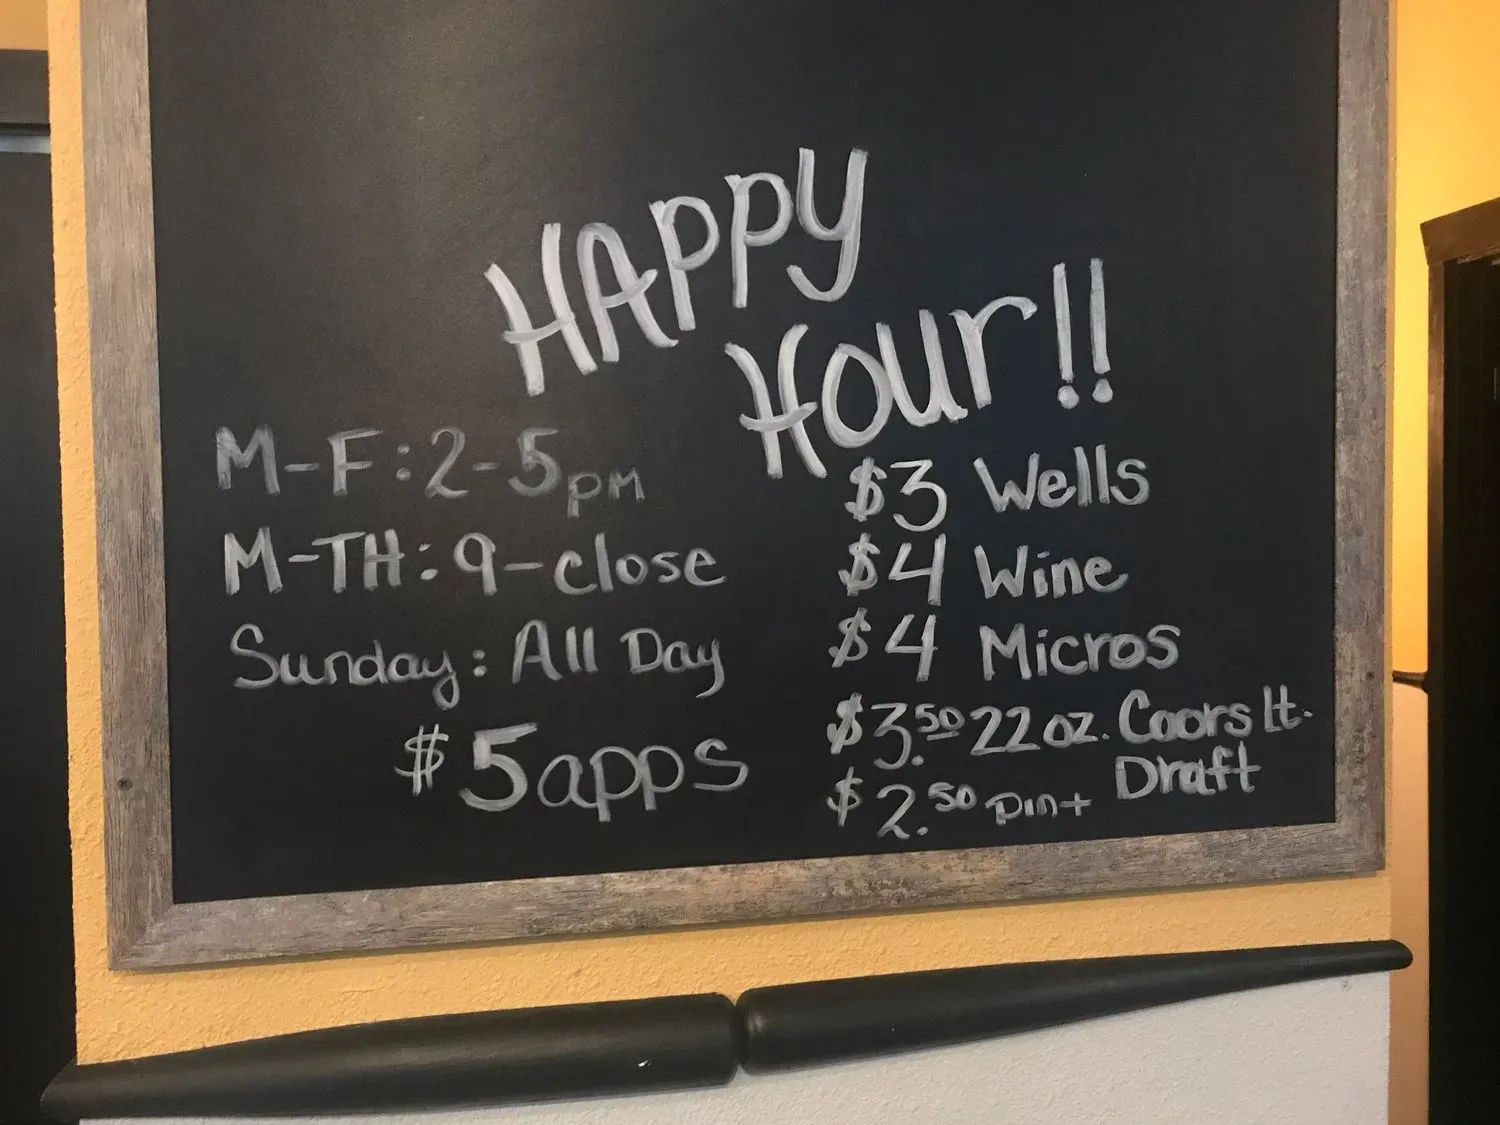 HAPPY
Hour!!
M-F: 2-5pm
M-TH: 9-close
Sunday: All Day
$5 apps
$3 Wells
$4 Wine
$4 Micros
$3.50 22oz. Coors Lt.
Draft
$2.50 pint